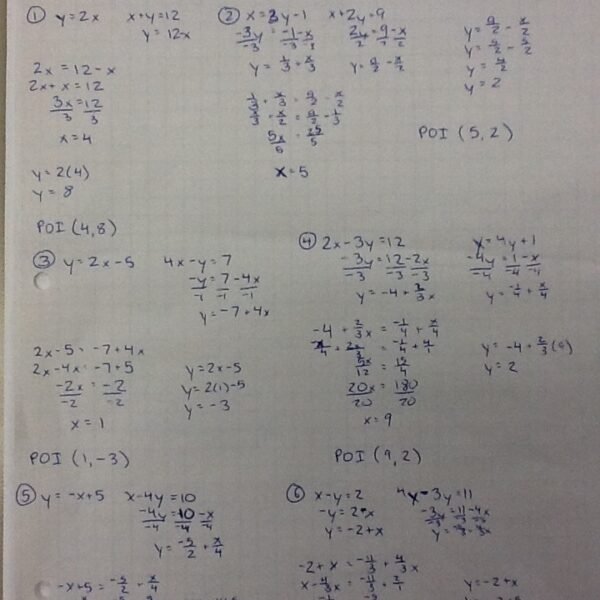 ① y=2x x+y=12
y=12-x
2x=12-x
2x+x=12
3x/3=12/3
x=4
y=2(4)
y=8
POI (4,8)
② x=3y-1 x+2y=9
-3y/-3=-1/-3-x/-3 2y/2=9/2-x/2
y=1/3+x/3 y=9/2-x/2
1/3+x/3=9/2-x/2
x/3+x/2=9/2-1/3
5x/5=25/5
x=5
y=9/2-x/2
y=9/2-5/2
y=4/2
y=2
POI (5,2)
③ y=2x-5 4x-y=7
-y/-1=7/-1-4x/-1
y=-7+4x
2x-5=-7+4x
2x-4x=-7+5
-2x/-2=-2/-2
x=1
y=2x-5
y=2(1)-5
y=-3
POI (1,-3)
④ 2x-3y=12 x=4y+1
-3y/-3=12/-3-2x/-3 -4y/-4=1/-4-x/-4
y=-4+2/3x y=-1/4+x/4
-4+2/3x=-1/4+x/4
=-1/4+4/1
15/4
20x/20=180/20
x=9
y=-4+2/3(9)
y=2
POI (9,2)
⑤ y=-x+5 x-4y=10
-4y/-4=10/-4-x/-4
y=-5/2+x/4
-x+5=-5/2+x/4
⑥ x-y=2 4x-3y=11
-y=2-x
y=-2+x
-2+x=-11/3+4/3x
x-4/3x=-11/3+2/1
y=-2+x